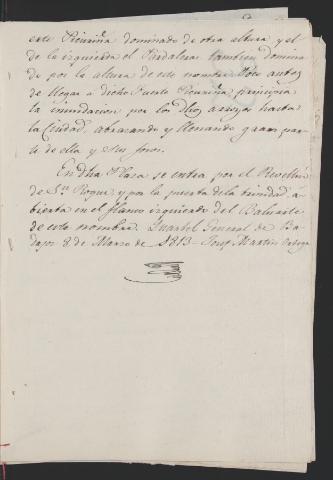 este Picuriña dominado de otra altura y el
de la izquierda el Pardaleras tambien domina
do por la altura de este nombre. Poco antes
de llegar a dicho Fuerte Picuriña principia
la inundacion por los dos arroyos hasta
la Ciudad, abrazando y llenando gran par
te de ella y sus fosos.
En dha Plaza se entra por el Revellin
de Sn Roque y por la puerta de la trinidad a
bierta en el flanco izquierdo del Baluarte
de este nombre. Quartel General de Ba
dajoz 8 de Marzo de 1813 Josef Martin